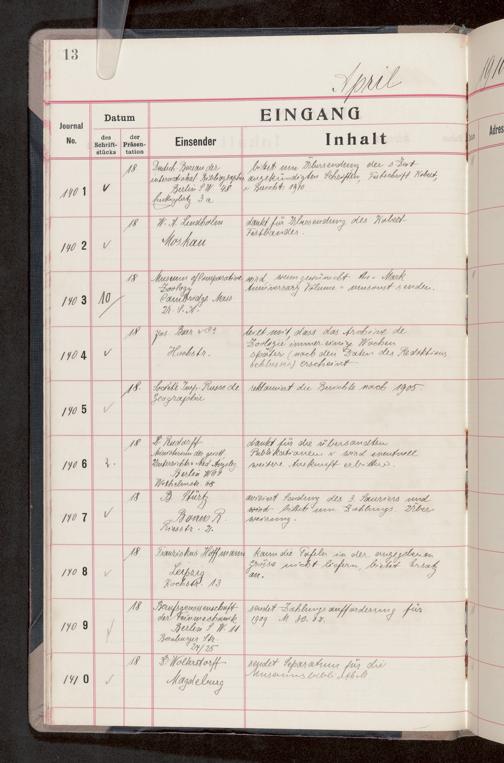 13
April
1910
Journal
No.
Datum
des
Schrift-
stücks
der
Präsen-
tation
EINGANG
Einsender
Inhalt
Adres
1401
18
Deutsch. Bureau der
international. Bibliographie
Berlin S.W. 48
3a
bittet um Übersendung der
angekündigten Schriften, Festschrift Kobelt,
u Bericht 1910
1402
18
W. A. Lindholm
Moskau
dankt für Übersendung des Kobelt
Festbandes.
1403
10
18
Museum of Comparative
Zoology
Cambridge Mass
U. S. A.
wird wenn gewünscht the Mark
Anniversary Volume umsonst senden.
1404
18
Hochstr.
teilt mit, dass das Archive de
Zoologie immer einige Wochen
später (nach den Daten des Redaktions
schlusses) erscheint
1405
18
Société Imp. Russe de
Geographie
reklamiert die Berichte nach 1905
1406
18
Dr Rudorff
Ministerium der geistl.
Unterrichts u Med. Angeleg.
Berlin W 64
Wilhelmstr. 68
dankt für die übersandten
Publikationen u wird eventuell
weitere Auskunft erbitten.
1407
18
B. Stürtz
Bonn R.
Riesstr. 2.
Sendung des 3 und
bittet um Zahlungs Über
weisung.
1408
18
Franziskus Hoffmann
Leipzig
Kochstr. 13
kann die Tafeln in der angegebenen
Grösse nicht liefern, bietet Ersatz
an.
1409
18
Berufsgenossenschaft
der Feinmechanik
Berlin S. W. 11
Bernburger Str.
24/25
sendet Zahlungsaufforderung für
1909 M. 80.
1410
18
Dr Wolterstorff
Magdeburg
sendet Separatum für die
Museumsbibliothek